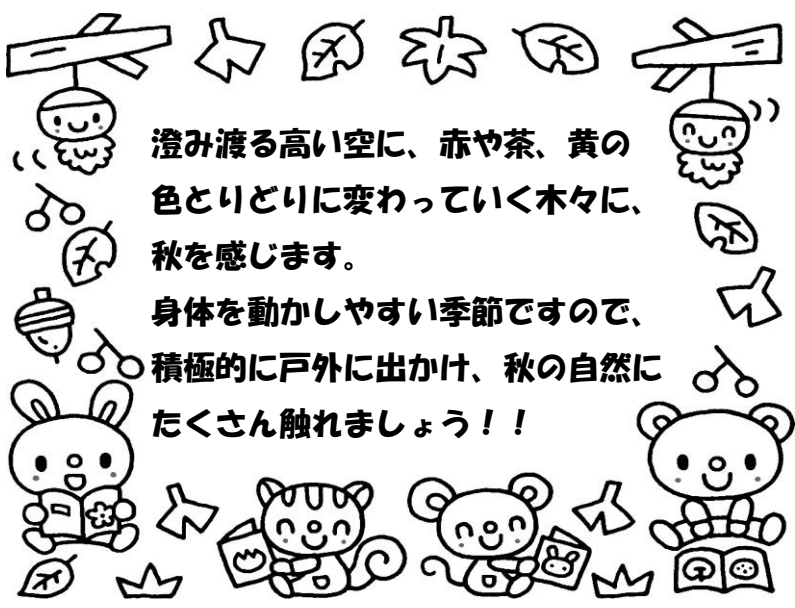 澄み渡る高い空に、赤や茶、黄の
色とりどりに変わっていく木々に、
秋を感じます。
身体を動かしやすい季節ですので、
積極的に戸外に出かけ、秋の自然に
たくさん触れましょう！！